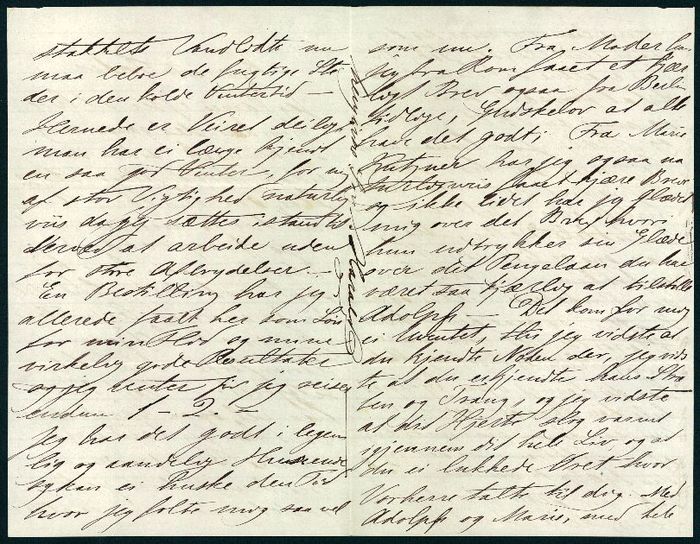 stakkels Vandlidte nu
maa beboe de fugtige Ste
der i den kolde Vintertid –
Hernede er Veiret deiligt
man har ei længe kjendt
en saa god Vinter, for mig
af stor Vigtighed naturlig
viis da jeg sættes istand til
derved at arbeide uden
for store Afbrydelser –
En Bestilling har jeg
allerede faaet her som Løn
for min Flid og mine
virkelig gode Resultater
og jeg venter før jeg reiser
endnu 1 – 2. –
Jeg har det godt i legem
lig og aandelig Henseende
jeg kan ei huske den Tid
hvor jeg følte mig saa vel
som nu. Fra Moder har
jeg fra Rom faaet et kjær
ligt Brev ogsaa fra Berlin
tidlige, Gudskelov at alle
have det godt; Fra Marie
Kutzner har jeg ogsaa na
turligviis faaet kjære Breve
og ikke lidet har jeg glædet
mig over det Brev hvori
hun udtrykker sin Glæde
over det Pengelaan du har
været saa kjærlig at tilstille
Adolph – Det kom for mig
ei uventet, thi jeg vidste at
du kjendte Nøden der, jeg vids
te at du erkjendte hans Stræ
ben og Trang, og jeg vidste
at dit Hjerte slog varmt
igjennem dit hele Liv og at
du ei lukkede Øret hvor
Vorherre talte til dig. Med
Adolph og Marie, med hele